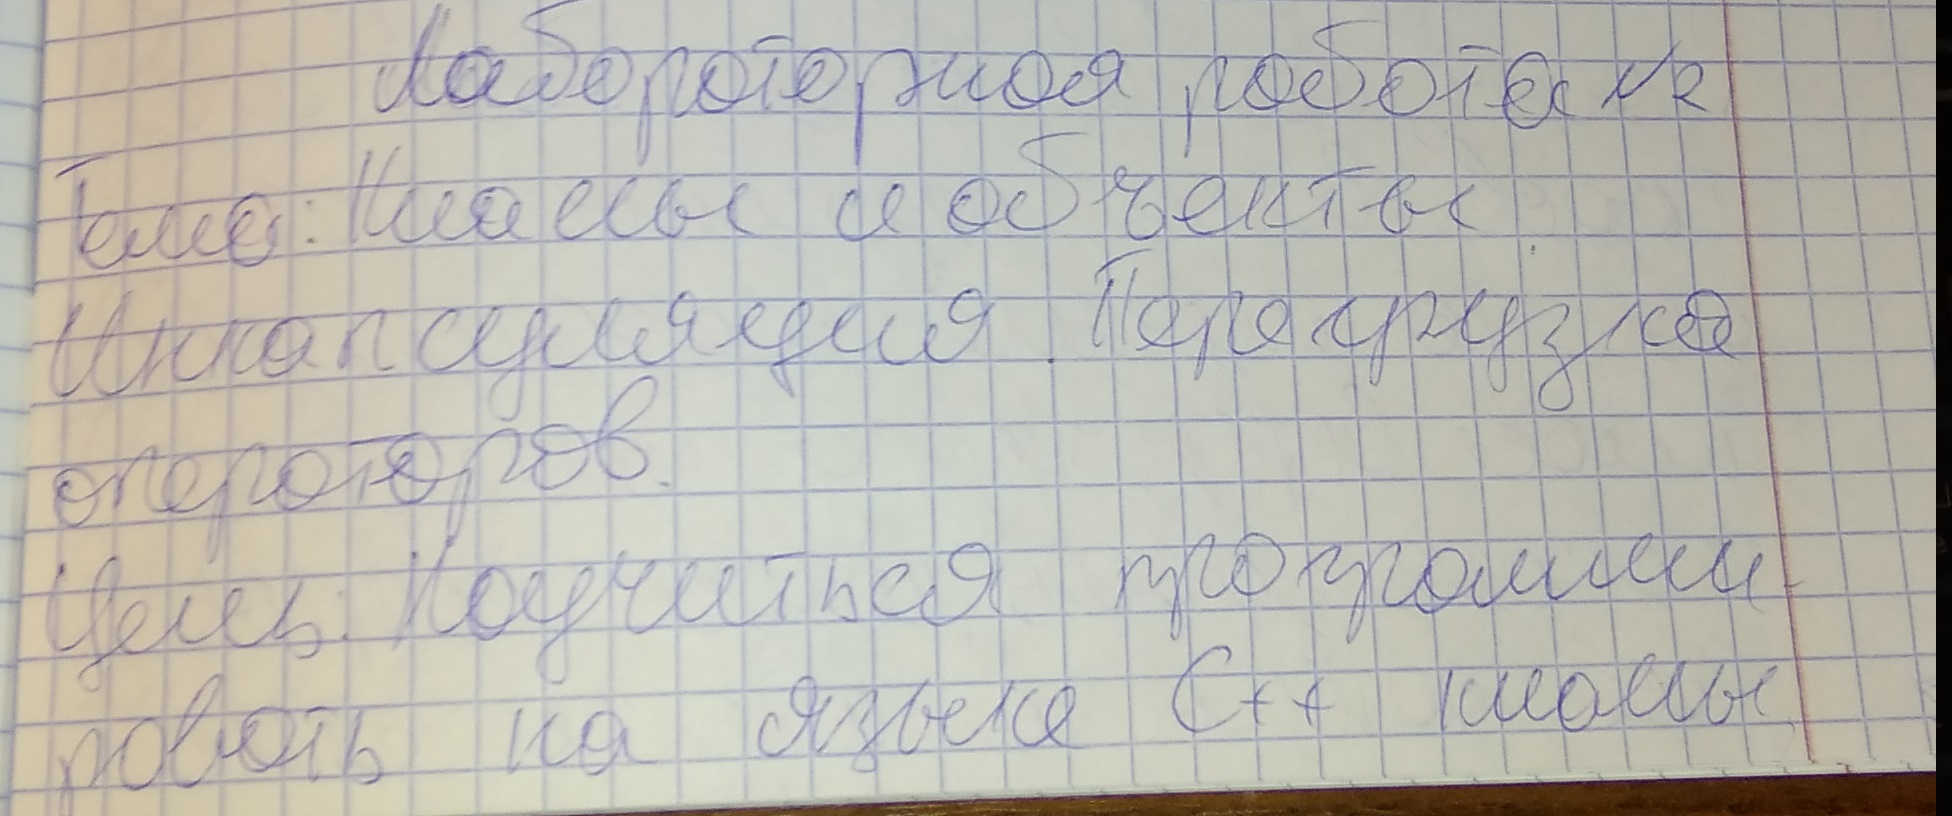 Лабораторная работа №2
Тема: Классы и объекты
Инкапсуляция. Перегрузка
операторов.
Цель: Научиться программи
ровать на языке C++ классы